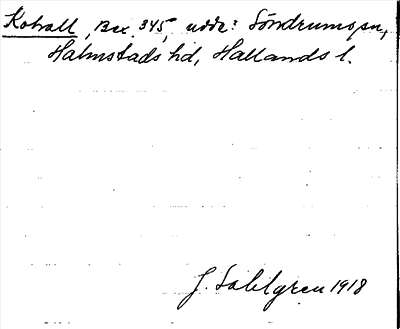 Kotrall, Bec 345, udde: Söndrums sn,
Halmstads hd, Hallands l.
J. Sahlgren 1918